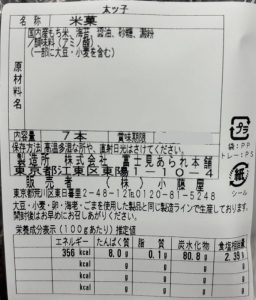 太ッ子
名称 米菓
原材料名 国内産もち米、海苔、醤油、砂糖、澱粉
／調味料(アミノ酸)
(一部に大豆・小麦を含む)
内容量 7本 賞味期限
保存方法 高温多湿な所や、直射日光はさけてください。
製造所 株式会社 富士見あられ本舗
東京都江東区東陽1-10-4
販売者 (株)小藤屋
東京都荒川区東日暮里2-48-12℡0120-81-5248
大豆・小麦・卵・海老・ごまを使用した製品と同じ製造ラインで生産しております。
開封後はお早めにお召しあがりください。
プラ
袋:PP
トレー:PS
紙
シール
栄養成分表示(100gあたり)推定値
エネルギー たんぱく質 脂質 炭水化物 食塩相当量
356 kcal 8.0 g 0.1 g 80.8 g 2.39
g g g g
g g g g